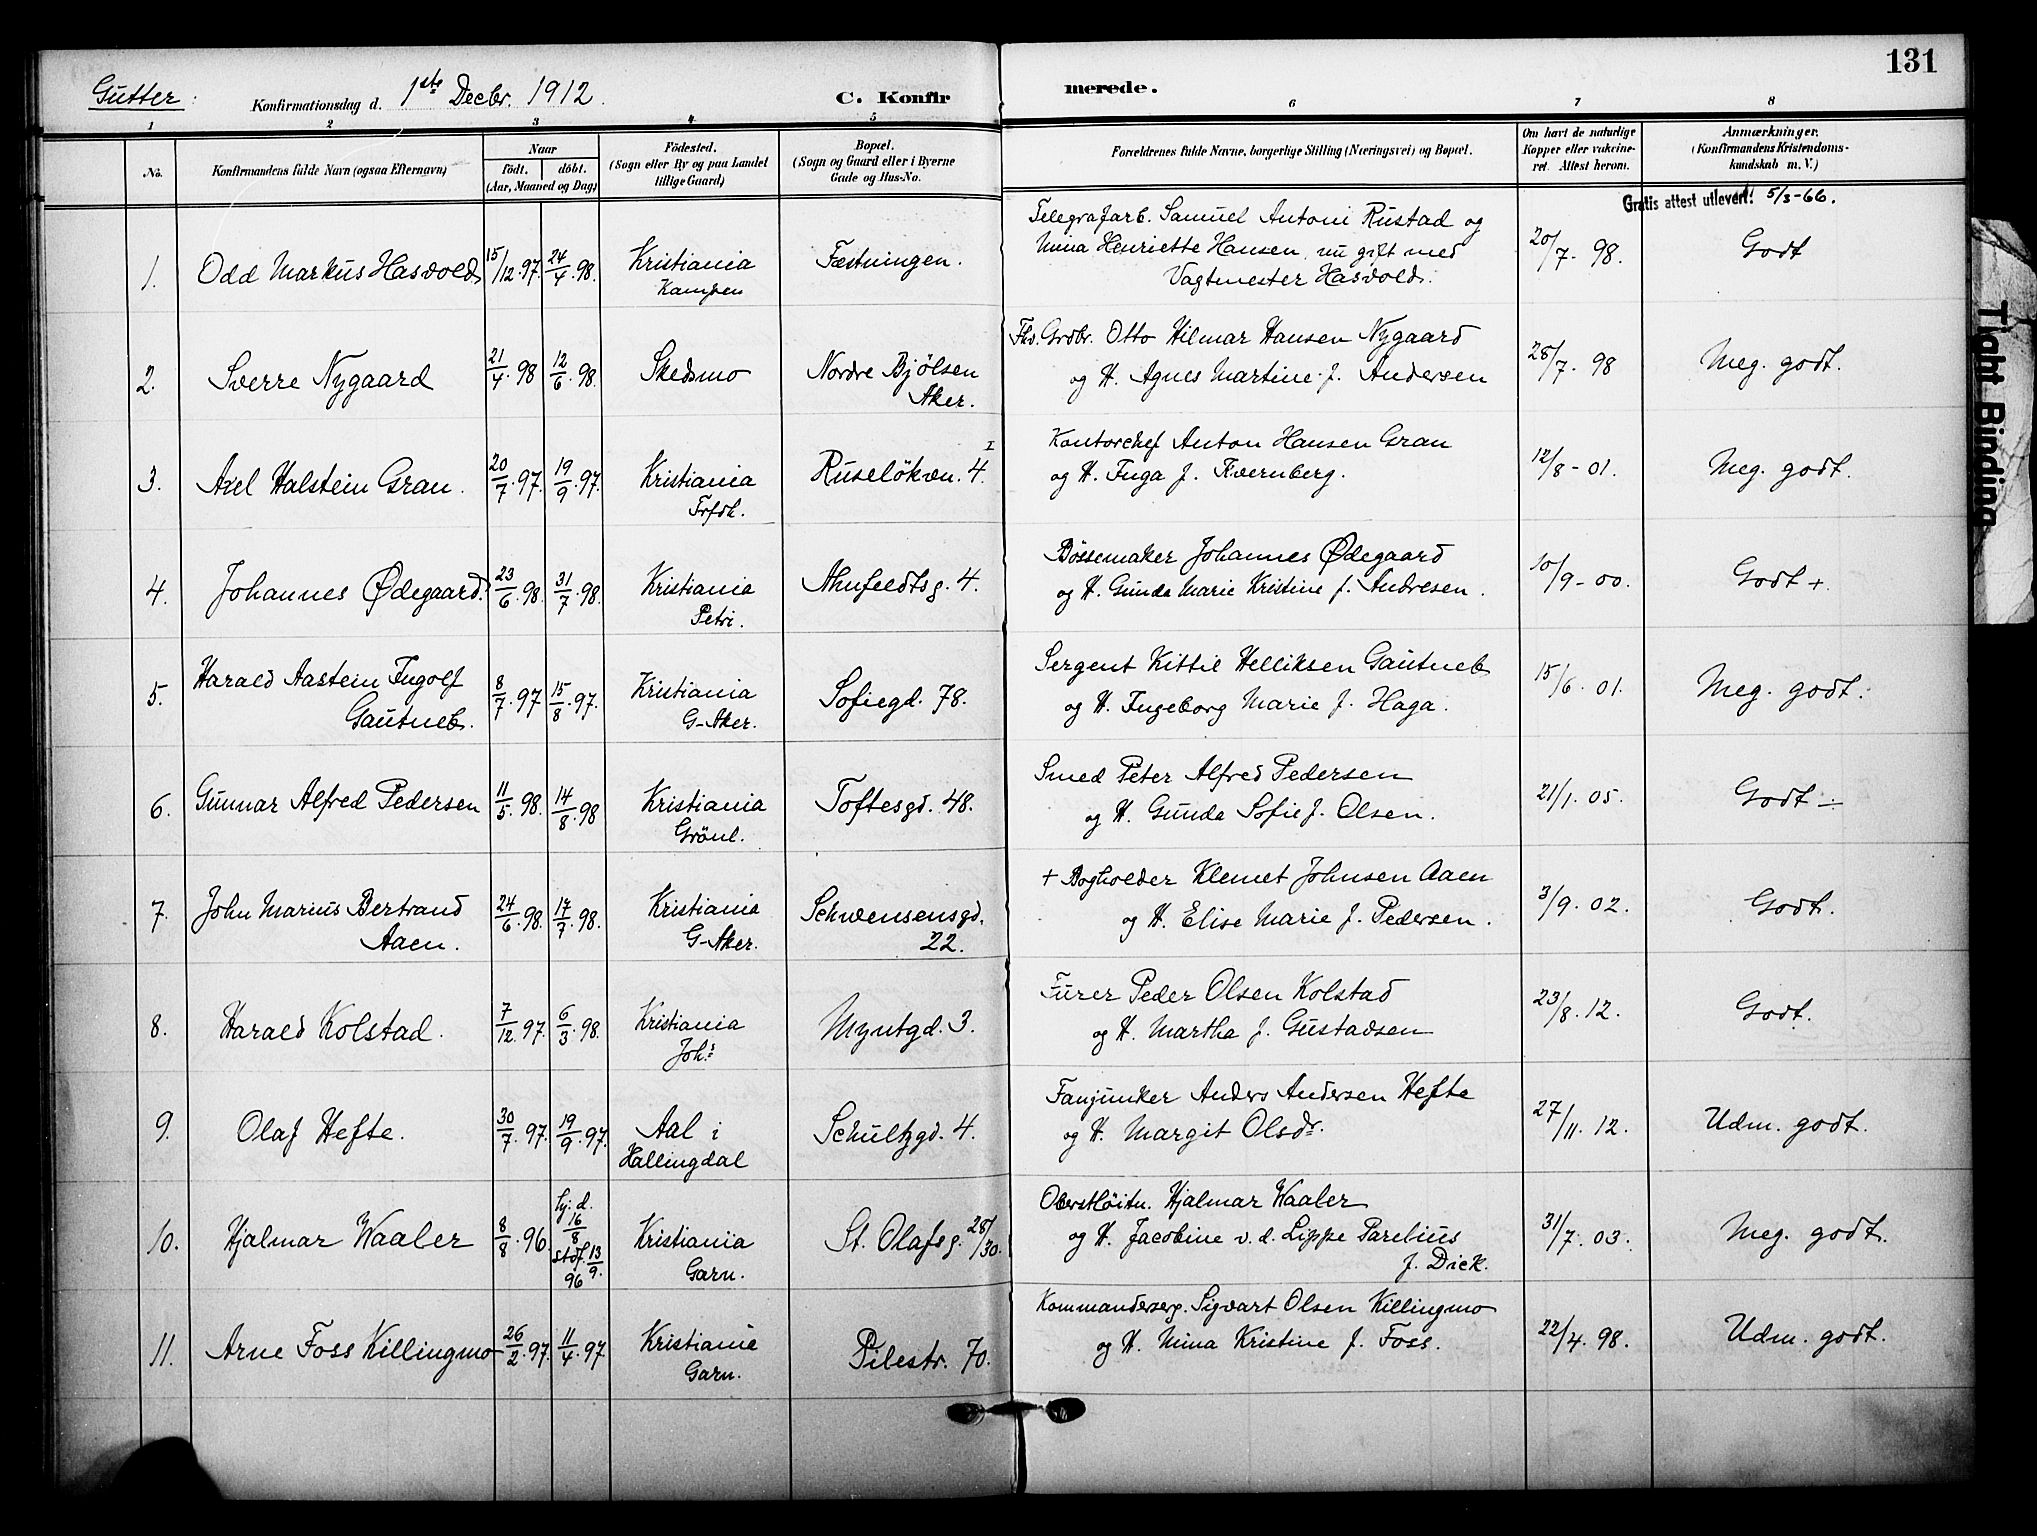 131
Gutter: Konfirmationsdag d. 1ste Decbr. 1912. C. Konfirmerede.
1 2 3 4 5 6 7 8
No.
Konfirmandens fulde Navn (ogsaa Efternavn)
Naar
födt. döbt.
(Aar, Maaned og Dag)
Födested.
(Sogn eller By og paa Landet
tillige Gaard)
Bopæl.
(Sogn og Gaard eller i Byerne
Gade og Hus-No.
Forældrenes fulde Navne, borgerlige Stilling (Næringsvei) og Bopæl.
Om havt de naturlige
Kopper eller vakcine-
ret. Attest herom.
Anmærkninger.
(Konfirmandens Kristendoms-
kundskab m. V.)
Gratis attest utlevert! 5/3-66.
1. Odd Markus Hasvold 15/12.97. 24/4.98. Kristiania Fæstningen.
Kampen
Telegrafarb. Samuel Antoni Rustad og
Mina Henriette Hansen, nu gift med
Vagtmester Hasvold.
20/7. 98. Godt
2. Sverre Nygaard 21/4.98 12/6.98. Skedsmo Nordre Bjölsen
Aker.
Fhv. Grdbr. Otto Hilmar Hansen Nygaard
og H. Agnes Martine f. Andersen
28/7. 98 Meg. godt.
3. Axel Halstein Gran. 20/7.97. 19/9.97. Kristiania Ruselökvn. 4. I
Trfdh.
Kontorchef Anton Hansen Gran
og H. Inga f. Kvernberg.
12/8-01. Meg. godt.
4. Johannes Ødegaard. 23/6.98. 31/7.98. Kristiania Ahnfeldtsg. 4.
Petri.
Bössemaker Johannes Ødegaard
og H. Gunda Marie Kristine f. Andresen.
10/9-00. Godt +.
5. Harald Aastein Ingolf
Gautneb. 8/7.97 15/8.97. Kristiania Sofiegd. 78.
G-Aker.
Sergent Kittil Helliksen Gautneb
og H. Ingeborg Marie f. Haga.
15/6. 01. Meg. godt.
6. Gunnar Alfred Pedersen 11/5.98. 14/8.98 Kristiania Toftesgd. 48.
Grönl.
Smed Peter Alfred Pedersen
og H. Gunda Sofie f. Olsen.
21/1. 05. Godt ÷
7. John Marius Bertrand
Aaen. 24/6.98. 17/7.98. Kristiania Schwensensgd.
G-Aker. 22.
+ Bogholder Klemet Johnsen Aaen
og H. Elise Marie f. Pedersen.
3/9. 02. Godt.
8. Harald Kolstad. 7/12.97. 6/3.98. Kristiania Myntgd. 3.
Johs.
Furer Peder Olsen Kolstad
og H. Martha f. Gustadsen
23/8. 12. Godt.
9. Olaf Hefte. 30/7.97. 19/9.97. Aal i Schultzgd. 4.
Hallingdal
Fanjunker Anders Andersen Hefte
og H. Margit Olsdr.
27/11. 12. Udm. godt.
10. Hjalmar Waaler 8/8.96 hj. d. 16/8 stdf. 13/9. 96 Kristiania St. Olafsg. 28/30.
Garn.
Oberstlöitn. Hjalmar Waaler
og H. Jacobine v. d. Lippe Parelius
f. Dick.
31/7. 03. Meg. godt.
11. Arne Foss Killingmo 26/2.97. 11/4.97. Kristiania Pilestr. 70.
Garn.
Kommanderserg. Sigvart Olsen Killingmo
og H. Mina Kristine f. Foss.
22/4. 98. Udm. godt.
Tight Binding